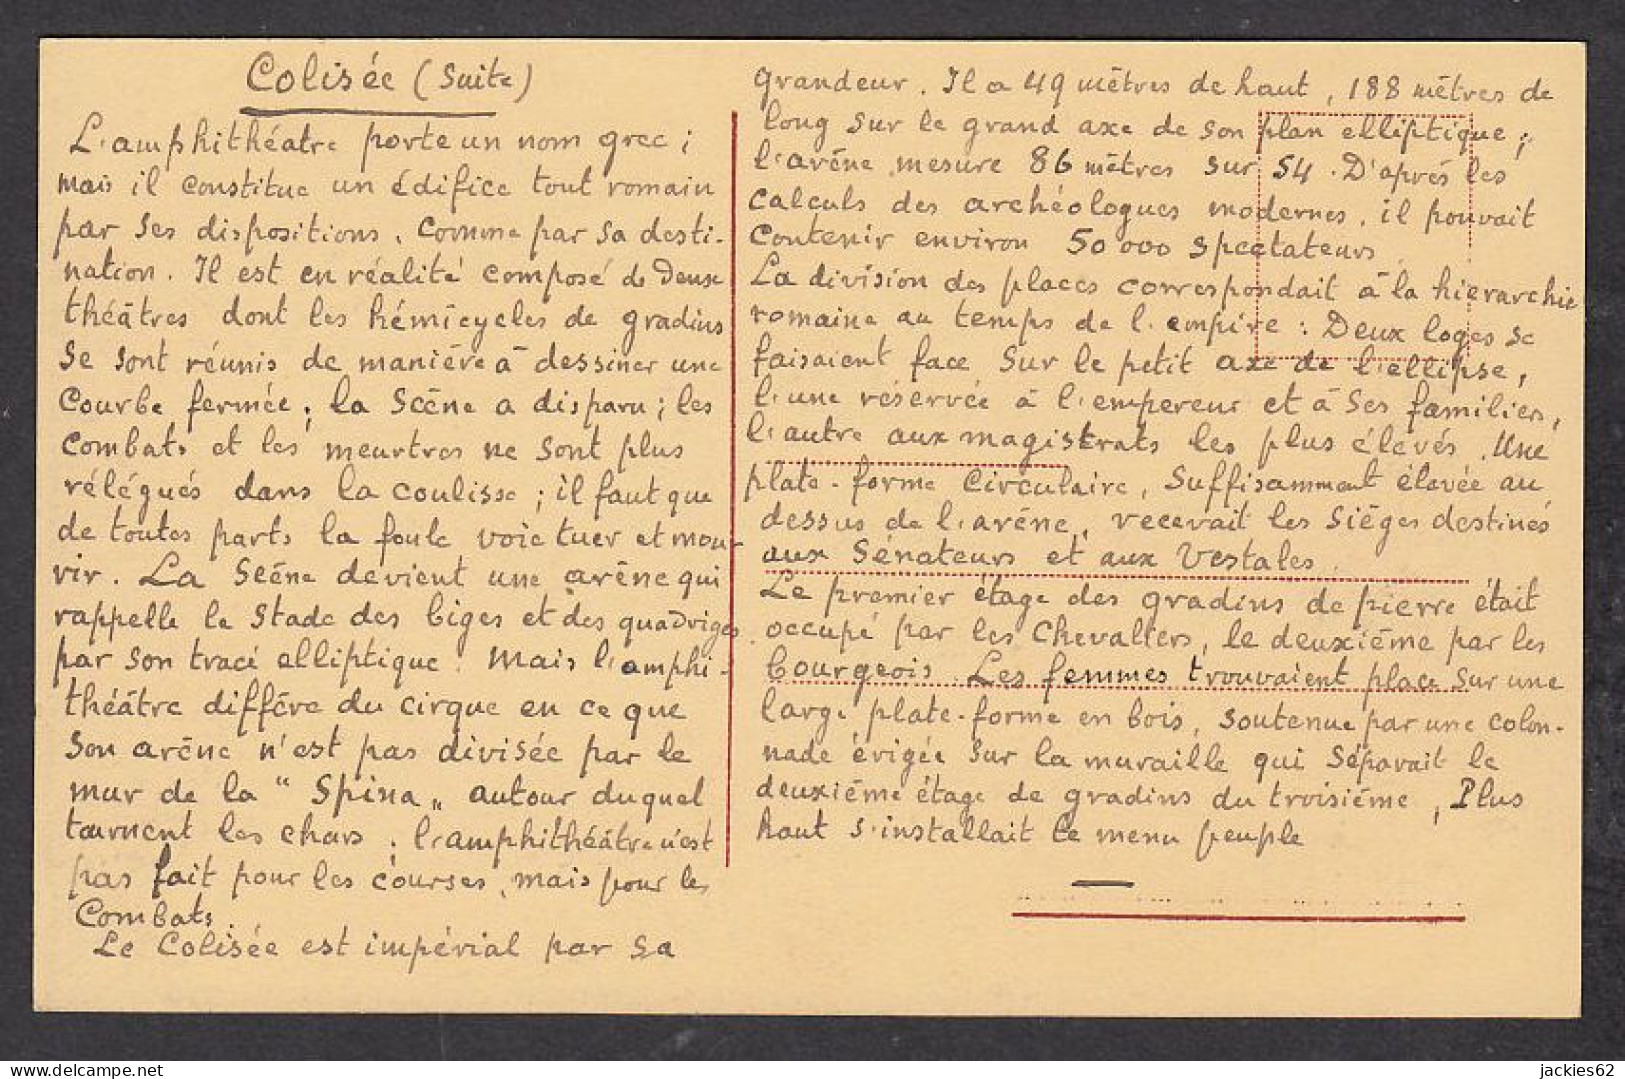 Colisée (Suite)
L'amphithéatre porte un nom grec ;
mais il constitue un édifice tout romain
par ses dispositions, comme par sa desti-
nation. Il est en réalité composé de Deux
théâtres dont les hémicycles de gradins
se sont réunis de manière à dessiner une
courbe fermée, la scène a disparu ; les
combats et les meurtres ne sont plus
rélégués dans la coulisse ; il faut que
de toutes parts la foule voie tuer et mou-
rir. La scène devient une arène qui
rappelle le stade des biges et des quadriges
par son tracé elliptique. Mais l'amphi-
théâtre diffère du cirque en ce que
son arène n'est pas divisée par le
mur de la "Spina" autour duquel
tournent les chars. l'amphithéâtre n'est
pas fait pour les courses, mais pour les
Combats.
Le Colisée est impérial par sa
grandeur. Il a 49 mètres de haut, 188 mètres de
long sur le grand axe de son plan elliptique ;
l'arène mesure 86 mètres sur 54. D'après les
calculs des archéologues modernes, il pouvait
contenir environ 50 000 spectateurs.
La division des places correspondait à la hierarchie
romaine au temps de l'empire : Deux loges se
faisaient face sur le petit axe de l'ellipse,
l'une réservée à l'empereur et à ses familiers,
l'autre aux magistrats les plus élevés. Une
plate-forme circulaire, suffisamment élevée au
dessus de l'arène, recevait les sièges destinés
aux Sénateurs et aux Vestales.
Le premier étage des gradins de pierre était
occupé par les Chevaliers, le deuxième par les
bourgeois. Les femmes trouvaient place sur une
large plate-forme en bois, soutenue par une colon-
nade érigée sur la muraille qui séparait le
deuxième étage de gradins du troisième, Plus
haut s'installait le menu peuple
jackies62